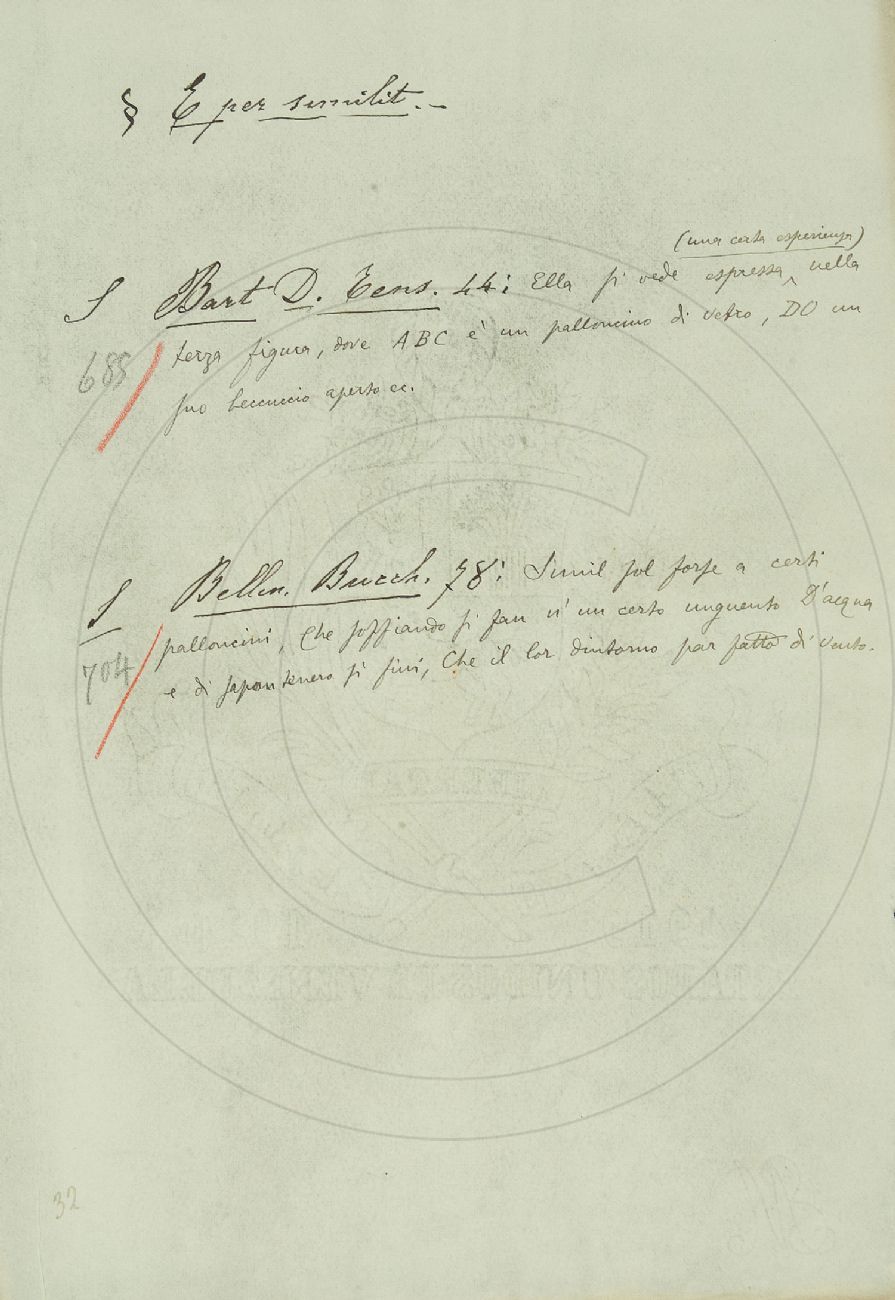 § E per similit. -
(una certa esperienza)
S Bart D. Tens. 44: Ella si vede espressa, nella
terza figura, dove ABC è un palloncino di vetro, DO un
685
suo beccuccio aperto ec.
S Bellin. Bucch. 78: Simil sol forse a certi
palloncini, Che soffiando si fan d'un certo unguento D'acqua
704
e di sapon tenero sì fini, Che il lor dintorno par fatto di vento.
32